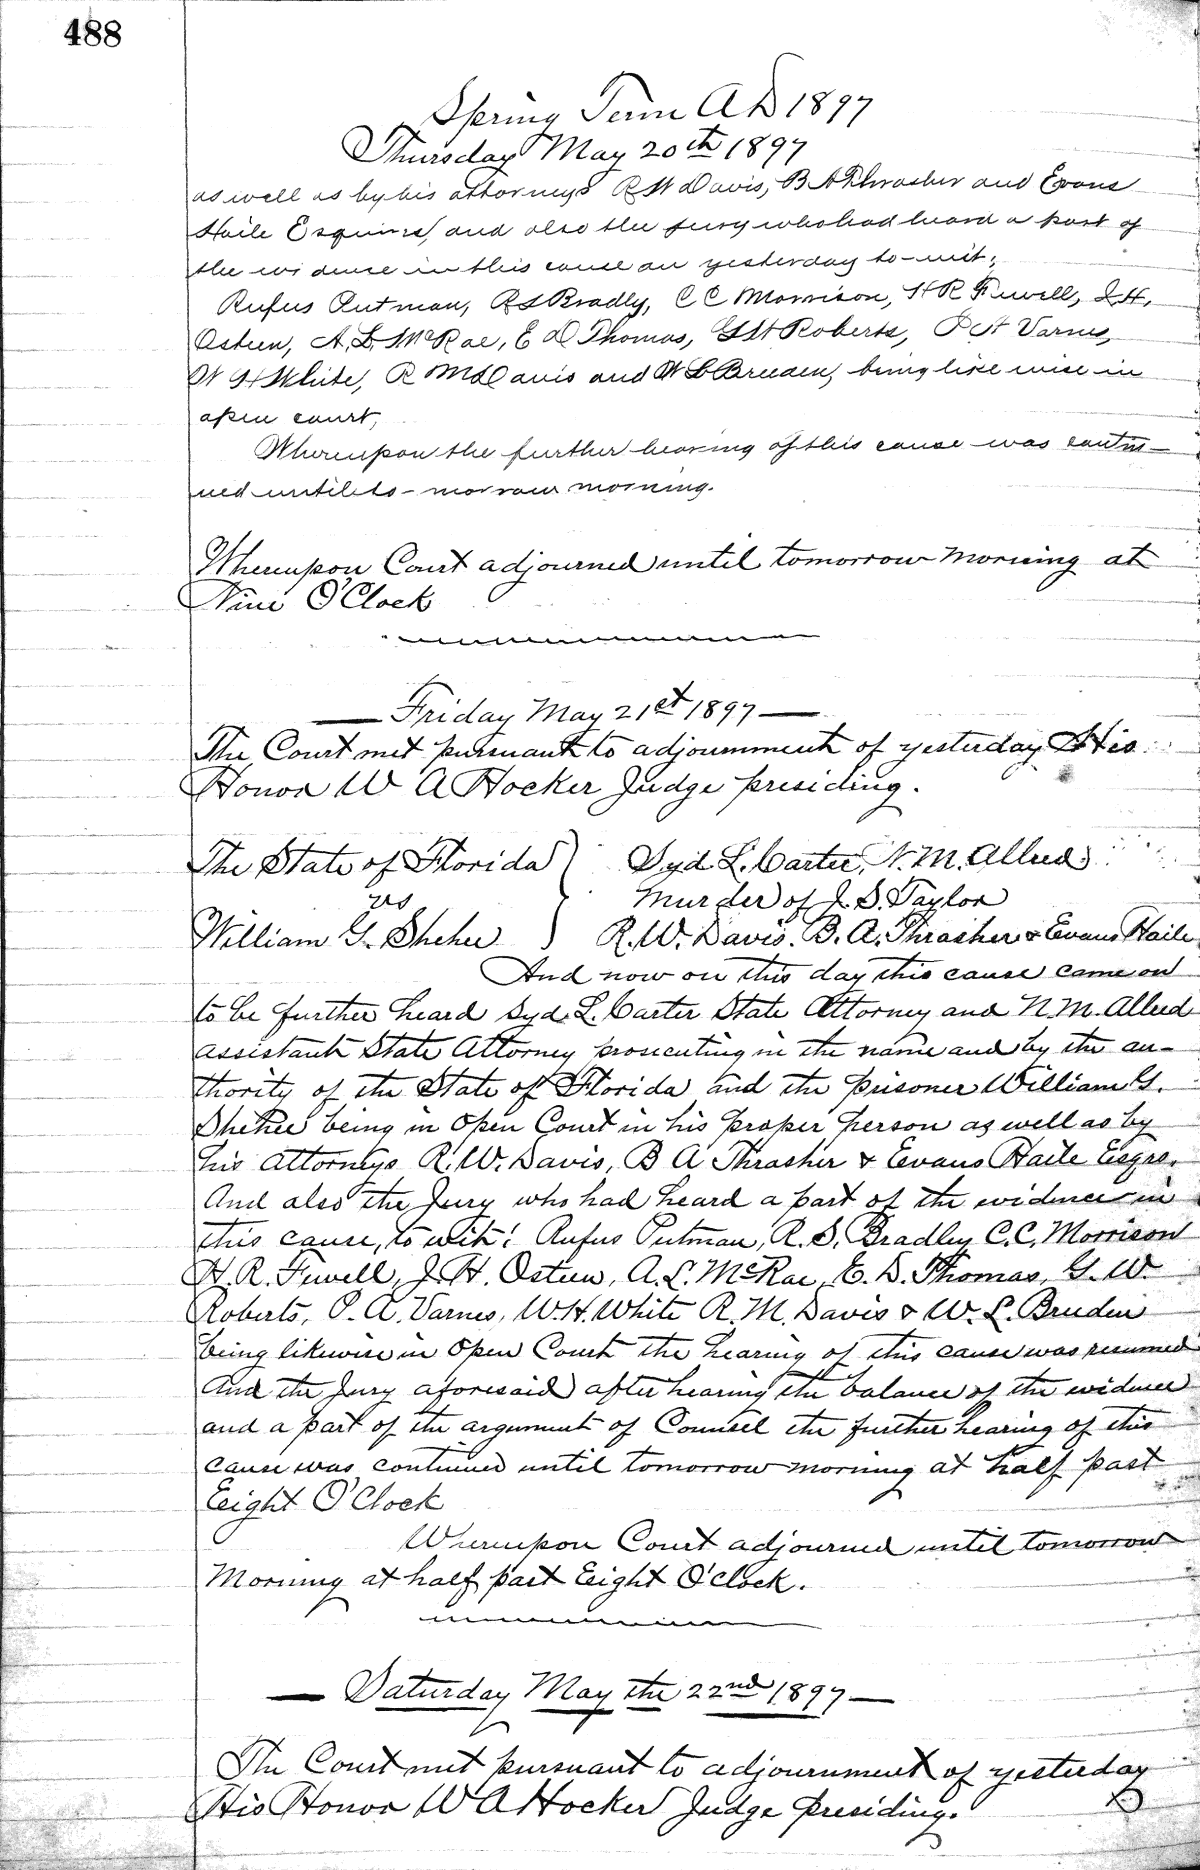 488
Spring Term A D 1897
Thursday May 20th 1897
as well as by his attorneys R W Davis, B A Thrasher and Evans
Haile Esquires, and also the jury who had heard a part of
the evidence in this cause on yesterday to-wit;
Rufus Putman, R S Bradly, C C Morrison, H R Fewell, J. H.
Osteen, A. L. McRae, E D Thomas, G W Roberts, P A Varnes,
W H White, R M Davis and W L Breeden, being like wise in
open court,
Whereupon the further hearing of this cause was contin-
ued until to-morrow morning.
Whereupon Court adjourned until tomorrow morning at
Nine O'Clock
Friday May 21st 1897
The Court met pursuant to adjournment of yesterday His
Honor W A Hocker Judge presiding.
The State of Florida } Syd L. Carter, N. M. Allred
vs Murder of J. S. Taylor
William G. Shehee } R. W. Davis. B. A. Thrasher & Evans Haile
And now on this day this cause came on
to be further heard Syd. L. Carter State Attorney and N. M. Allred
assistant State Attorney prosecuting in the name and by the au-
thority of the State of Florida and the prisoner William G.
Shehee being in Open Court in his proper person as well as by
his Attorneys R. W. Davis, B A Thrasher & Evans Haile Esqrs.
And also the Jury who had heard a part of the evidence in
this cause, to wit: Rufus Putman, R. S. Bradley C. C. Morrison
H. R. Fewell, J. H. Osteen, A. L. McRae, E. D. Thomas, G. W.
Roberts, P. A. Varnes, W. H. White R. M. Davis & W. L. Breeden
being likewise in Open Court the hearing of this cause was resumed
And the Jury aforesaid after hearing the balance of the evidence
and a part of the argument of Counsel the further hearing of this
cause was continued until tomorrow morning at half past
Eight O'Clock
Whereupon Court adjourned until tomorrow
Morning at half past Eight O'Clock.
Saturday May the 22nd 1897
The Court met pursuant to adjournment of yesterday
His Honor W A Hocker Judge presiding.